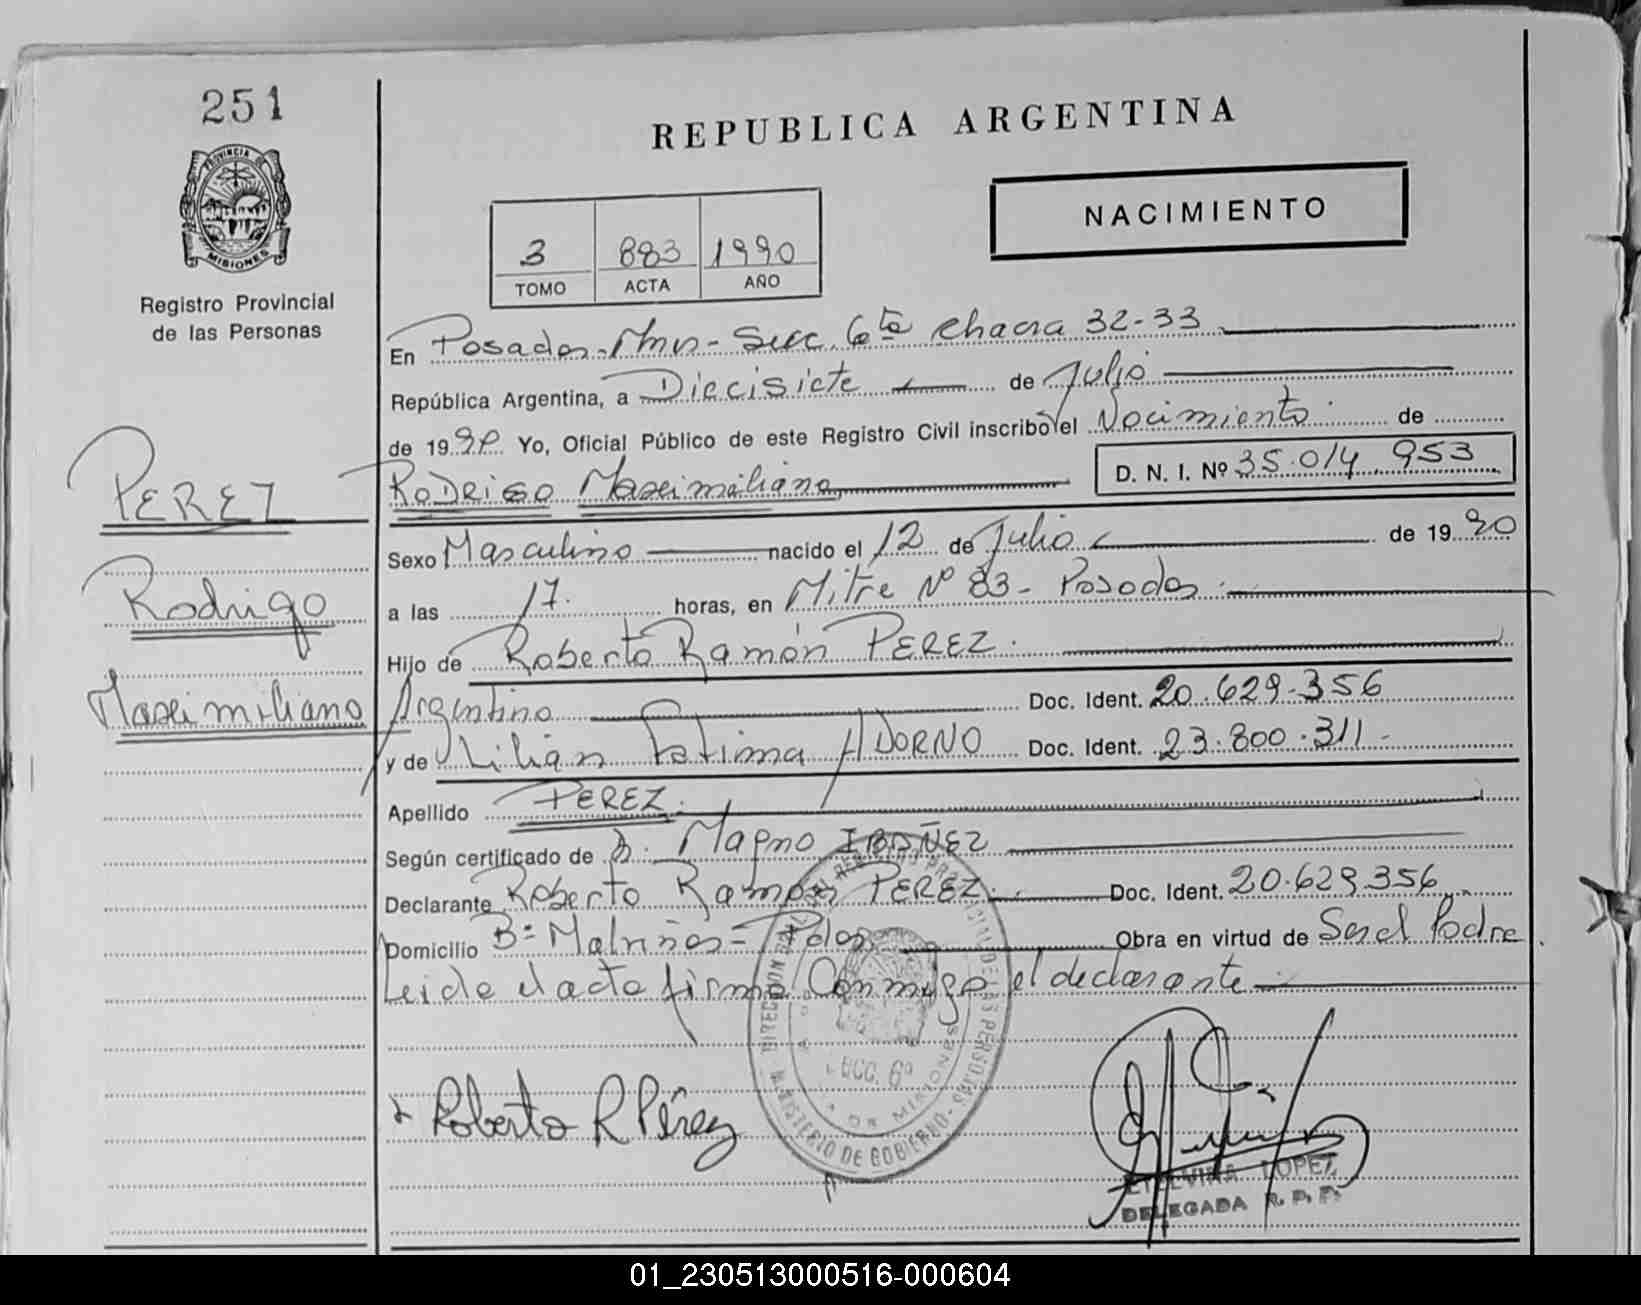 251
PROVINCIA DE
MISIONES
Registro Provincial
de las Personas
REPUBLICA ARGENTINA
NACIMIENTO
3 883 1990
TOMO ACTA AÑO
En Posadas-Mnes- Secc. 6ta Chacra 32-33
República Argentina, a Diecisiete de Julio
de 1990 Yo, Oficial Público de este Registro Civil inscribo el Nacimiento de
PEREZ Rodrigo Maximiliano D. N. I. Nº 35.014.953
Sexo Masculino nacido el 12 de Julio de 1990
Rodrigo
a las 17 horas, en Mitre Nº 83- Posadas
Hijo de Roberto Ramón PEREZ
Maximiliano
Argentino Doc. Ident. 20.629.356
y de Lilian Fatima ADORNO Doc. Ident. 23.800.311
Apellido PEREZ
Según certificado de D. Magno IBAÑEZ
Declarante Roberto Ramón PEREZ Doc. Ident. 20.629.356
Domicilio Bº Malvinas- Pdas Obra en virtud de Ser el Padre
Leida el acta firma Conmigo el declarante
Roberto R Pérez
SECC. 6º
DE MISIONES
MINISTERIO DE GOBIERNO
ETELVINA LOPEZ
DELEGADA R. P. P.
01_230513000516-000604